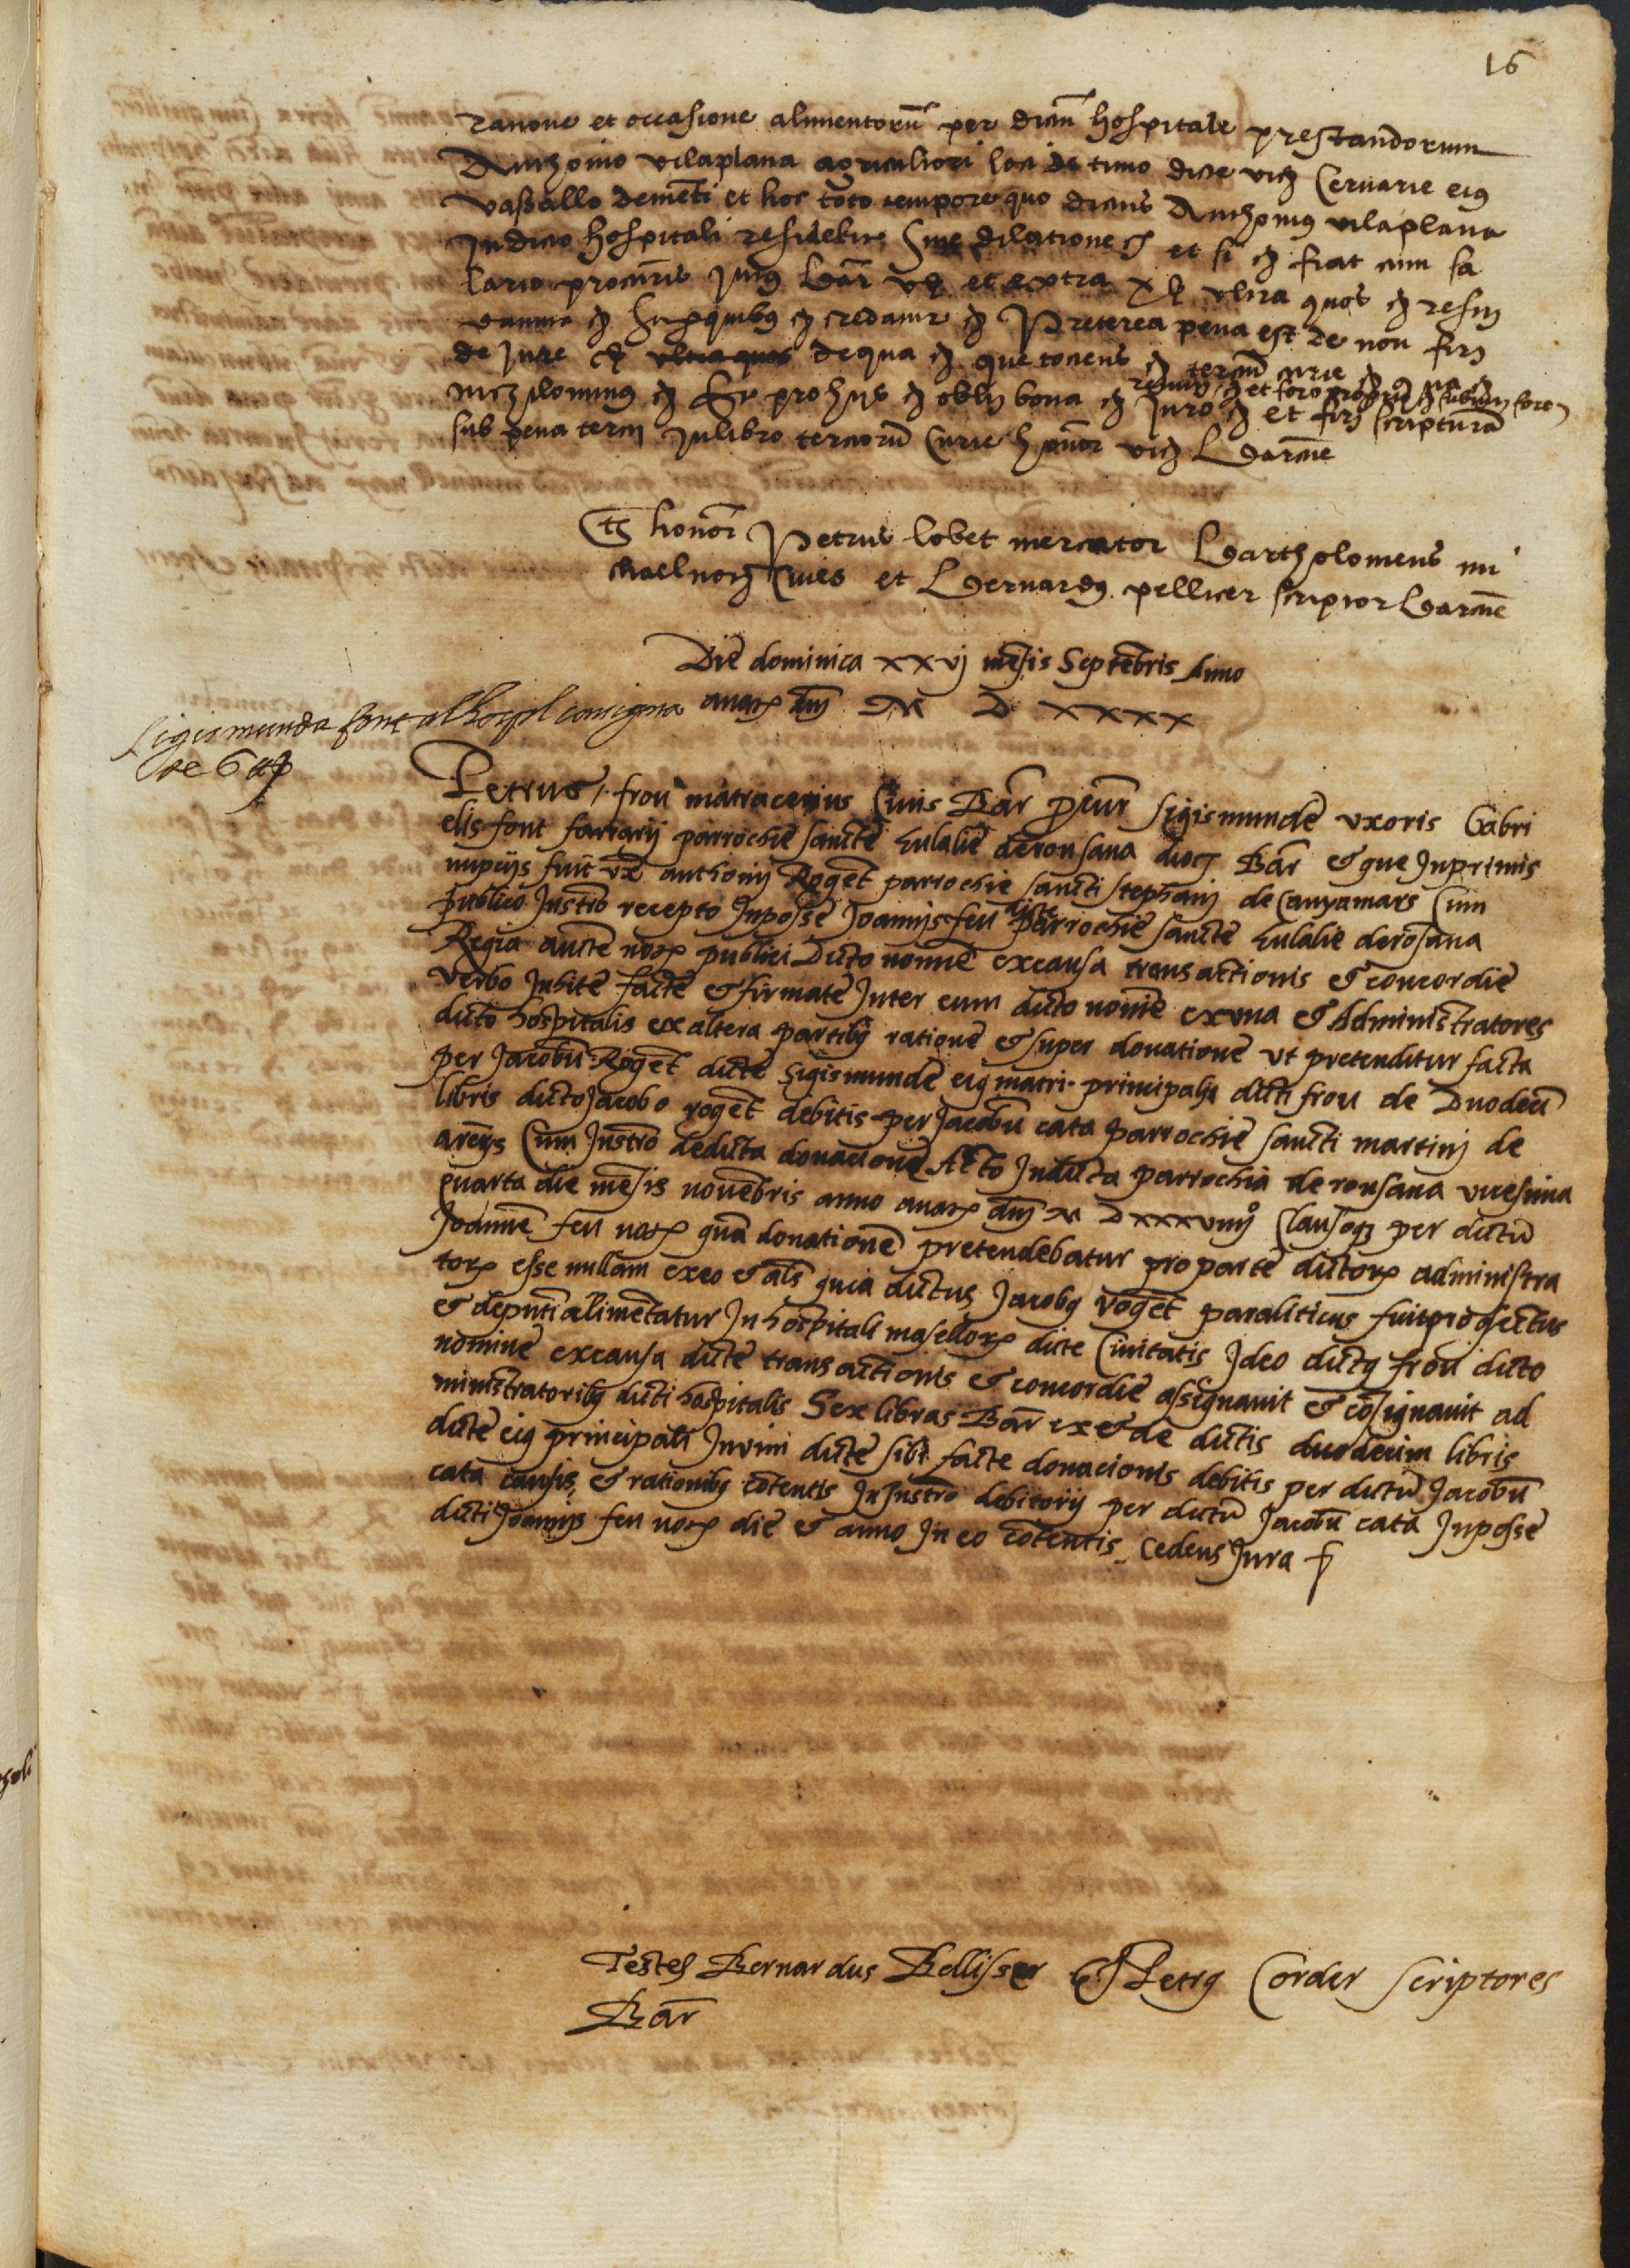 16
ratione et occasione alimentorū per dictū hospitale prestandorum
Anthonio vilaplana agricultori loci de timo dicte vicȝ Cervarie eiꝰ
vassallo demēti et hoc toto tempore quo dictus Anthoniꝰ vilaplana
In dicto hospitali residebit Sine dilatione ꝛc̄ et si ꝛc̄ fiat cum sa
lario procuris Intꝰ Bar̄ vs et extra xs ultra quos ꝛc̄ restiȝ
damna ꝛc̄ Sup quibꝰ ꝛc̄ credatur ꝛc̄ Preterea pena est de non firȝ
de Jure ꝛc̄ ultra quas de qua ꝛc̄ que totiens ꝛc̄ terciū curie ꝛc̄
nichilominꝰ ꝛc̄ Et pro hijs ꝛc̄ obliȝ bona ꝛc̄ renūȝ ꝛc̄ et foro proprio ꝛc̄ Juro ꝛc̄ et firȝ scripturā
sub pena tercij In libro terciorū Curie honor vicȝ Barcn̄e
Tȝ honor Petrus lobet mercator Bartholomeus mi
chael notȝ Cives et Bernardꝰ pellicer scriptor Barcn̄e
Die dominica xxvj mēsis Septēbris Anno
anatȝ dn̄j M D xxxx
Sigismunda font al hospl consigna
de 6 ₶
Petrus / frou matracerius Civis Bar̄ pcur̄ Sigismunde uxoris Gabri
elis font farrarij parrochie sancte Eulalie de ronsana dioc̄ Bar̄ & que In primis
nupcijs fuit ux̄ anthonij Roget parrochie sancti stephanj de Canyamars Cum
publico Instr̄o recepto In posse Joannis feu dicte parrochie sancte Eulalie de rosana
Regia aucte notȝ publici Dicto nomine ex causa transactionis & concordie
verbo Inhite facte & firmate Inter eum dicto nomine ex una & Administratores
dicto hospitalis ex altera partibꝰ ratione & super donatione ut pretenditur facta
per Jacobū Roget dicte Sigismunde eiꝰ matri principalj dicti frou de Duodecī
libris dicto Jacobo roget debitis per Jacobū cata parrochie sancti martinj de
arēys Cum Instr̄o de dicta donacione Acto In dicta parrochia de ronsana vicesima
quarta die mēsis novēbris anno anatȝ dn̄j M D xxxviiijº Clausoqȝ per dictū
Joannē feu notȝ quā donationē pretendebatur pro parte dictorȝ administra
torȝ esse nullam ex eo & al̄s quia dictus Jacobꝰ roget paraliticus fuit profectus
& deputī alimētatur In hospitali masellorȝ dicte Civitatis Ideo dictꝰ frou dicto
nomine ex causa dicte transactionis & concordie assignavit & cōsignavit ad
ministratoribꝰ dicti hospitalis Sex libras Bar̄ ex & de dictis duodecim libris
dicte eiꝰ principali In vim dicte sibi facte donacionis debitis per dictū Jacobū
cata causis & rationibꝰ cōtentis In Instr̄o debitorij per dictū Jacobū cata In posse
dicti Joannis feu notȝ die & anno In eo cōtentis Cedens Jura ꝛc̄
Testes Bernardus Bellisser & Petrꝰ Corder scriptores
Bar̄